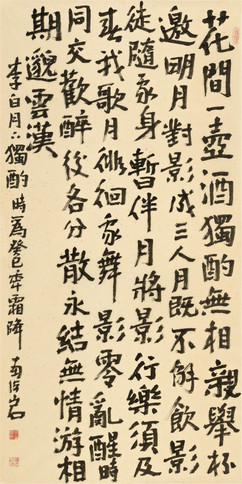 花間一壺酒獨酌無相親舉杯
邀明月對影成三人月既不解飲影
徒隨我身暫伴月將影行樂須及
春我歌月徘徊我舞影零亂醒時
同交歡醉後各分散永結無情游相
期邈雲漢
李白月下獨酌時為癸巳年霜降